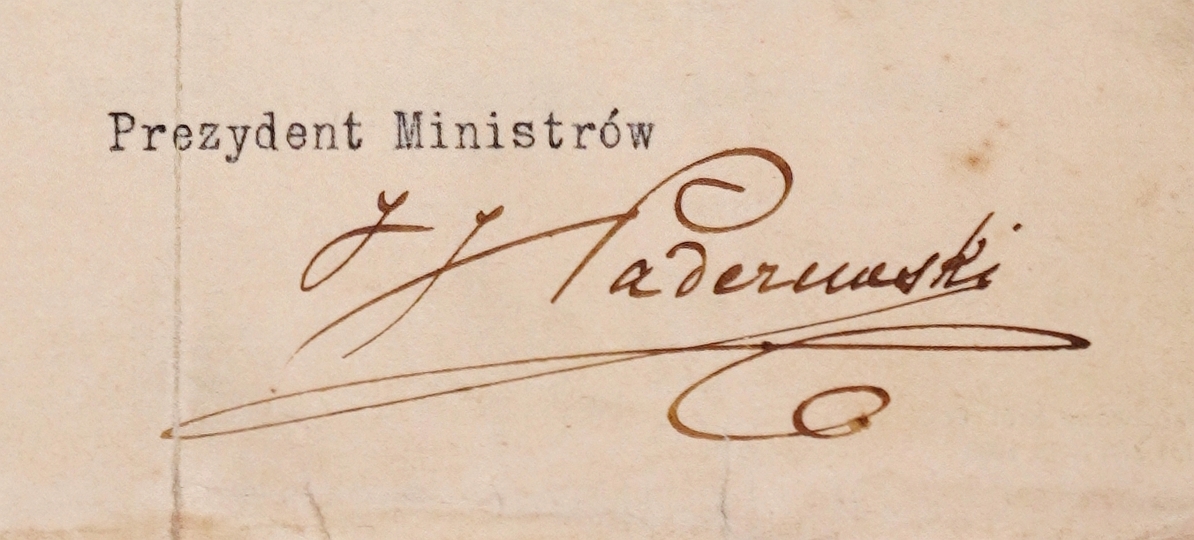 Prezydent Ministrów
J J Paderewski